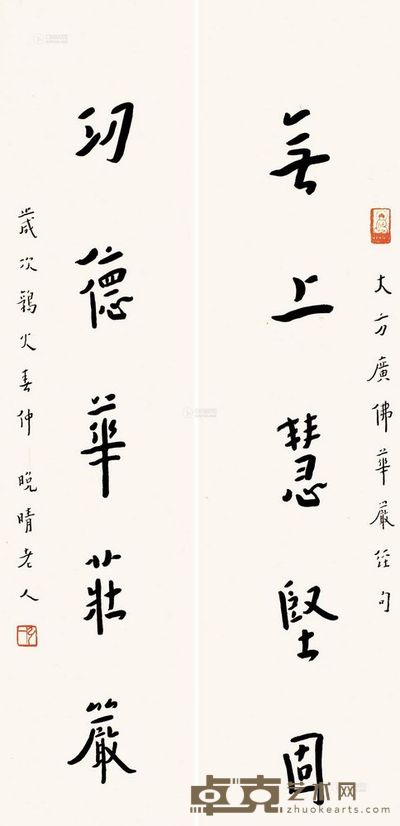 大方廣佛華嚴經句
無上慧堅固
功德華莊嚴
歲次鶉火春仲 晚晴老人
卓克艺术网
zhuokearts.com